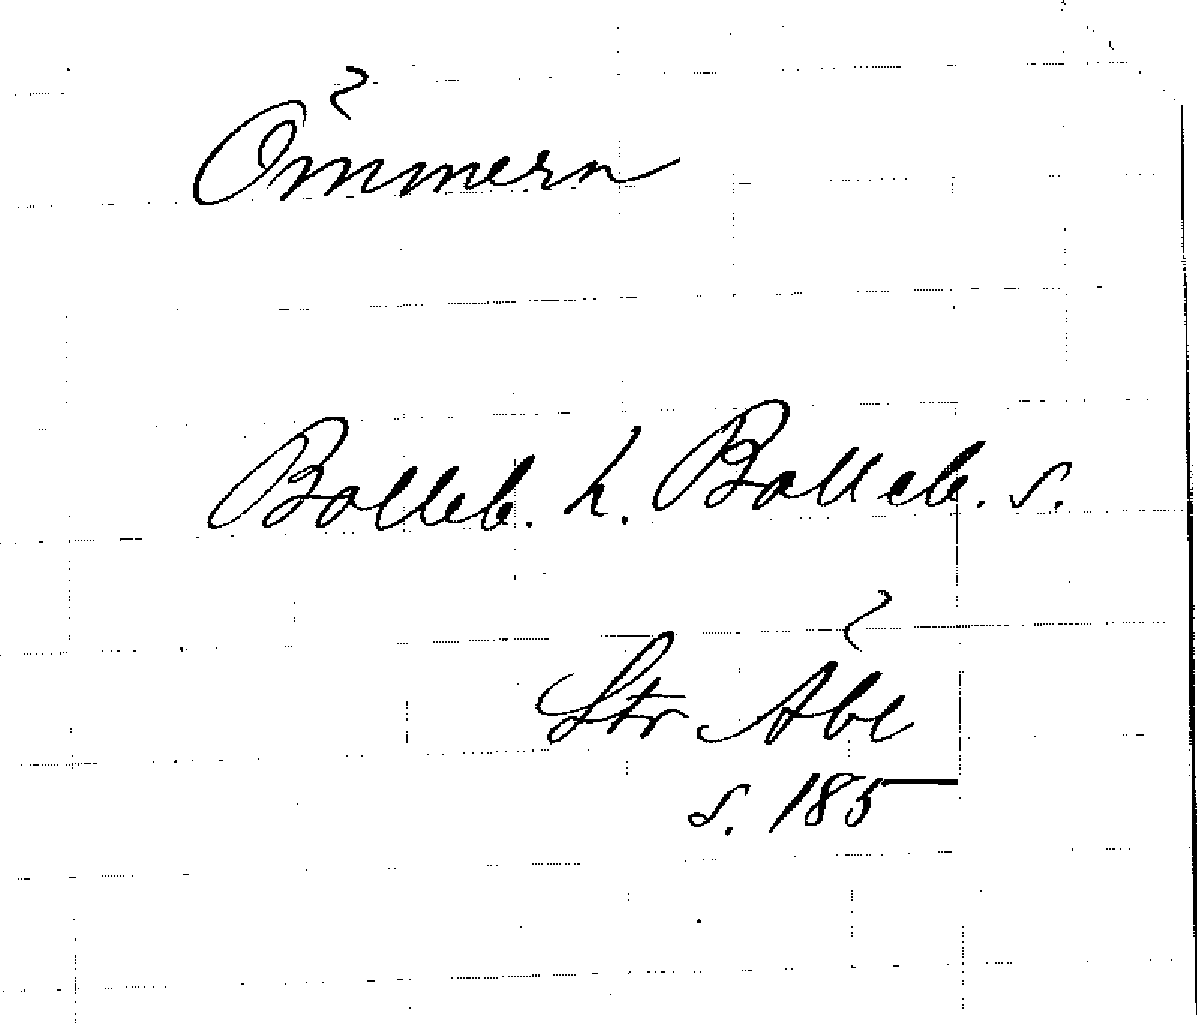 Ommern
Bolleb. h. Bolleb. s.
Str Abe
s. 185